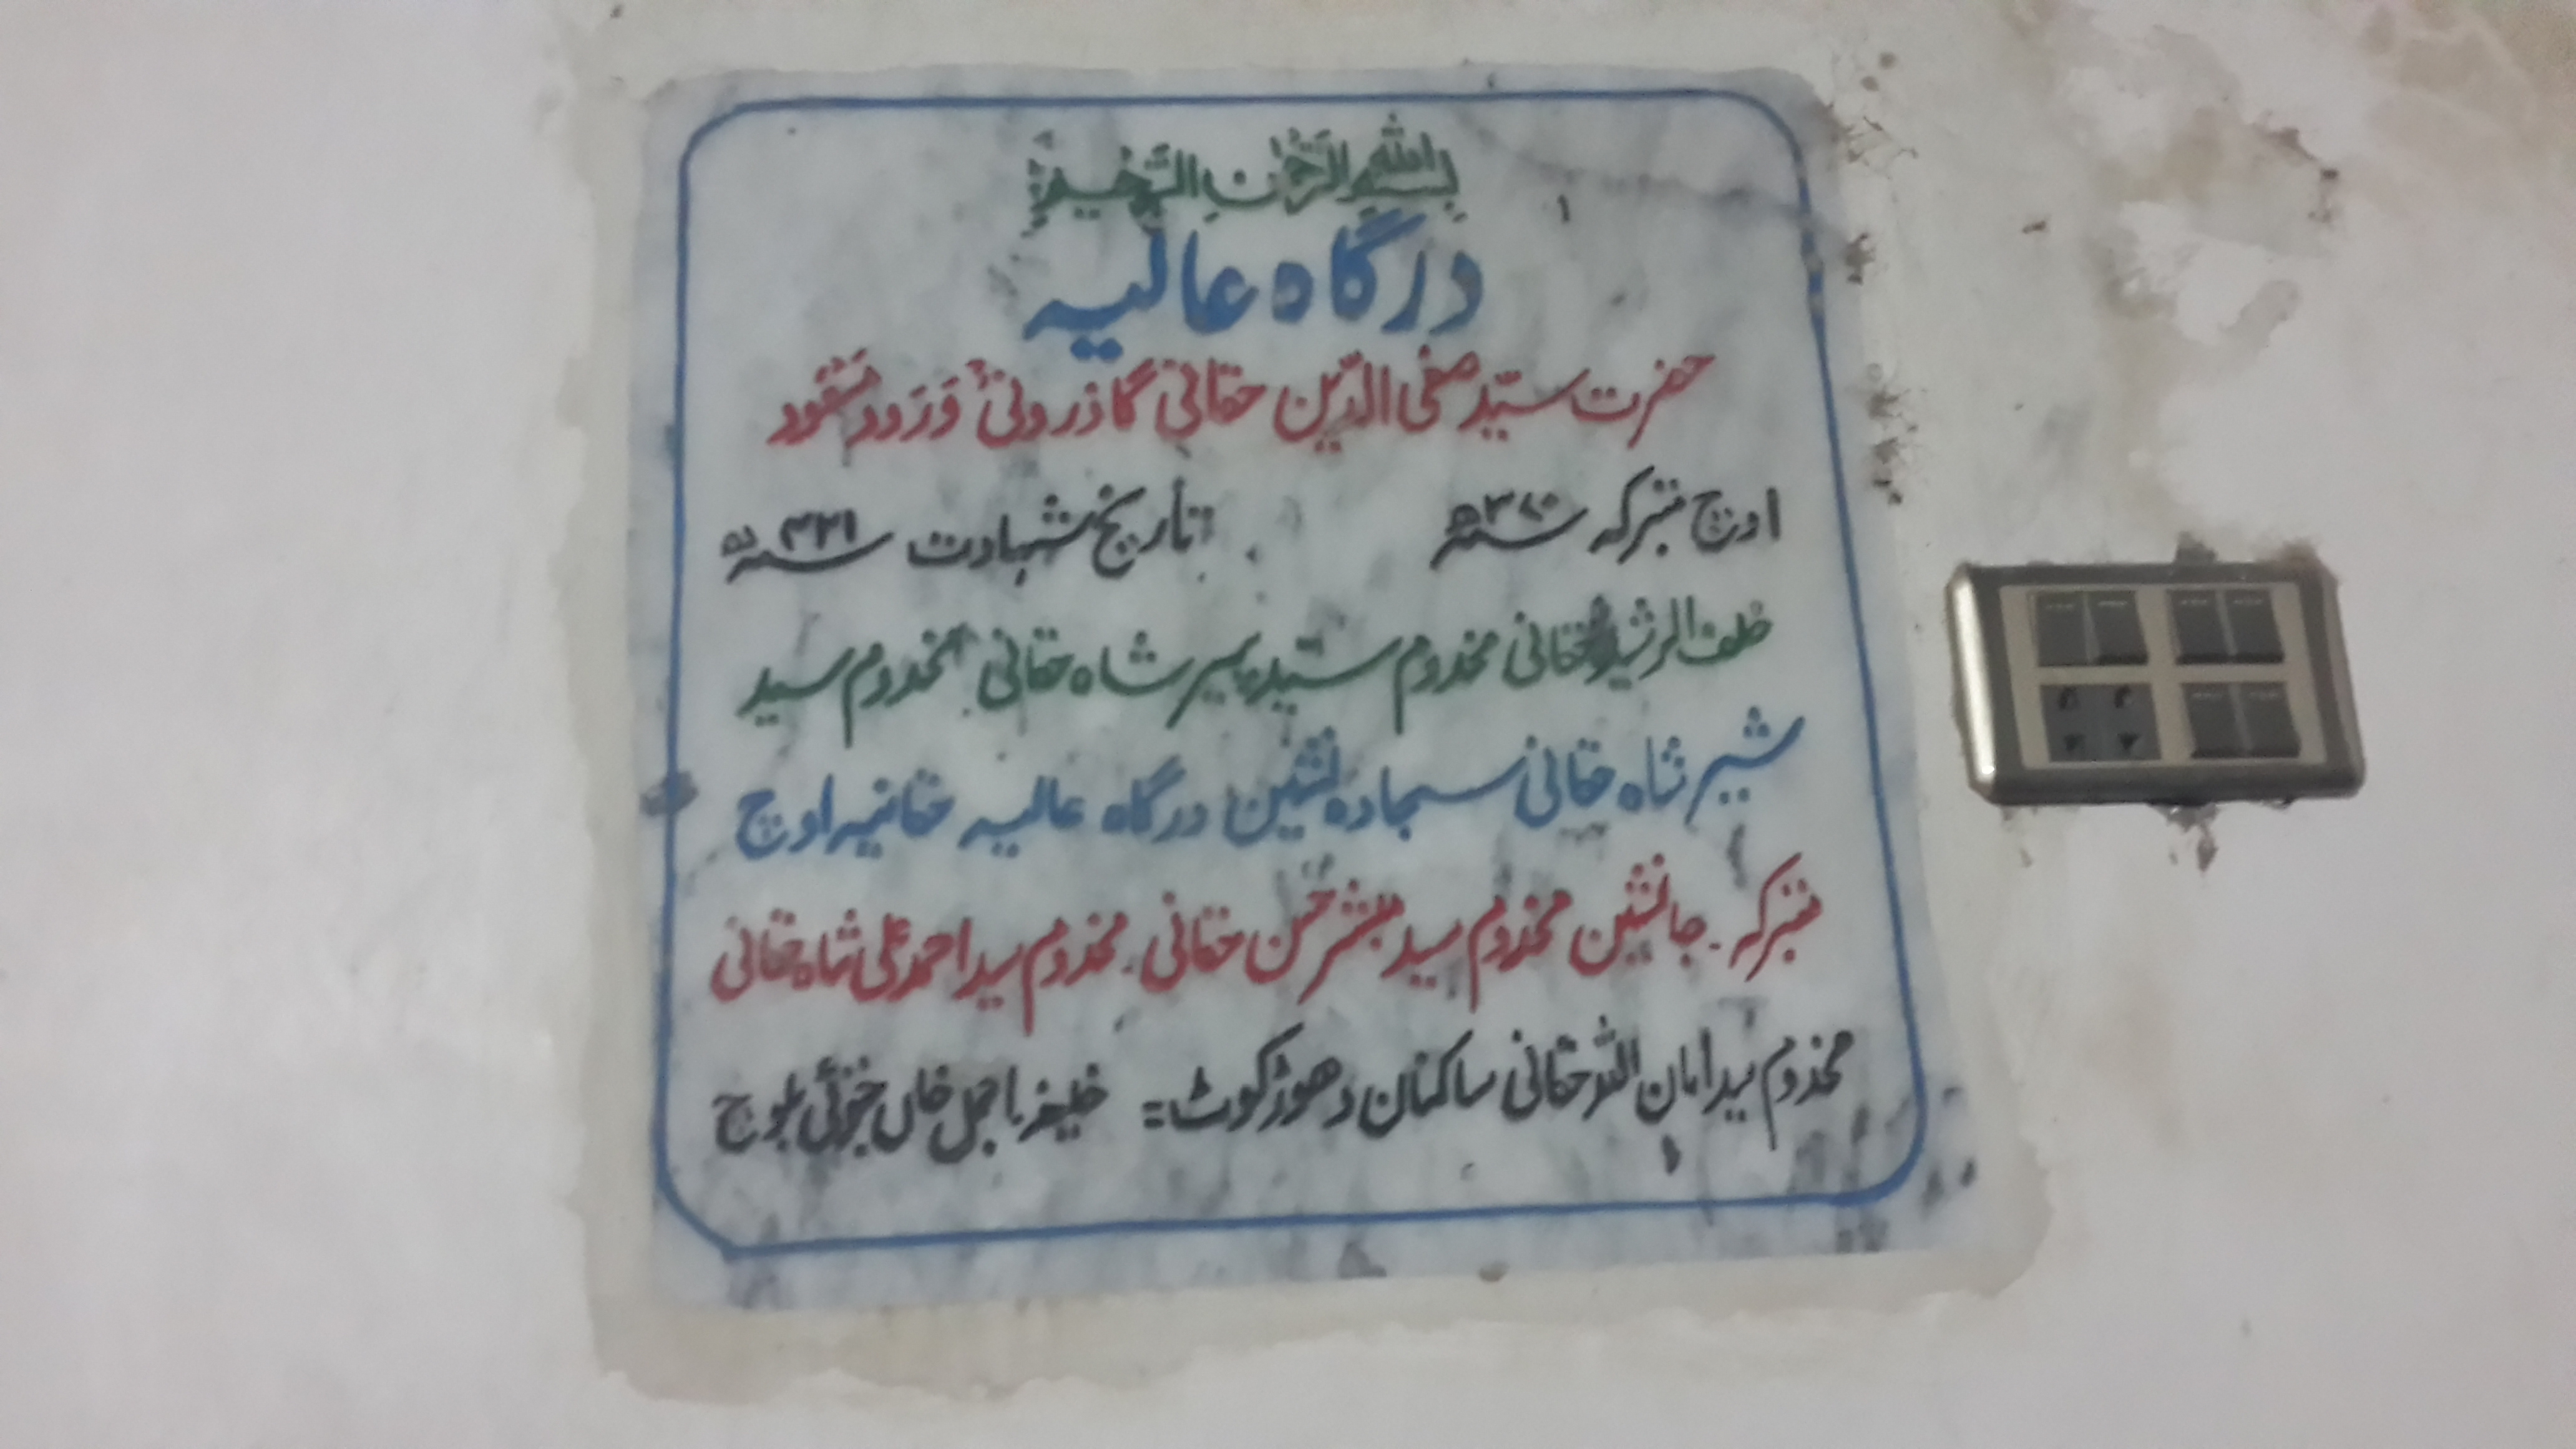 بسم اللہ الرحمٰن الرحیم
درگاہ عالیہ
حضرت سیّد صفی الدّین حقانی گاذرونیؒ وَرَود مَسْعُود
اوچ متبرکہ سنہ ۳۷۰ھ تاریخ شہادت سنہ
خلف الرشید حقانی مخدوم سیّد پیر شاہ حقانی مخدوم سید
شبیر شاہ حقانی سجادہ نشین درگاہ عالیہ حقانیہ اوچ
متبرکہ۔ جانشین مخدوم سید مبشر حسن حقانی۔ مخدوم سید احمد علی شاہ حقانی
مخدوم سید امان اللہ حقانی ساکنان دھوڑ کوٹ = خلیفہ اجمل خاں بلوچ